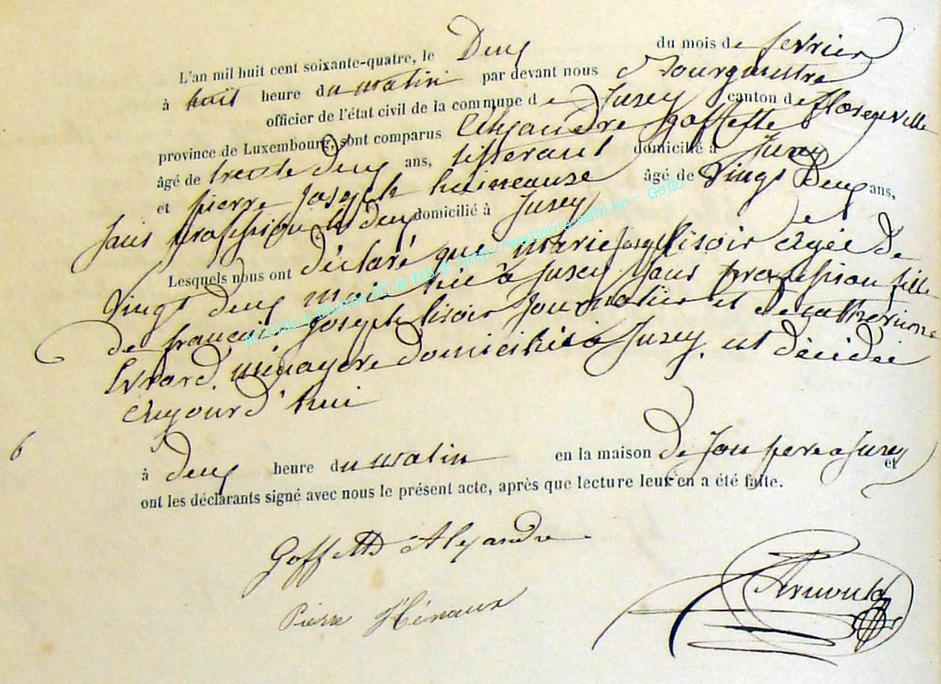 L'an mil huit cent soixante-quatre, le Deux du mois de fevrier
à huit heure du matin par devant nous Bourgmestre
officier de l'état civil de la commune de Jusey canton de florenville
province de Luxembourg, sont comparus Alexandre Goffette
âgé de trente deux ans, tisserant domicilié à Jusey
et pierre Joseph haineause âgé de Vingt Deux ans,
sans profession les deux domicilié à Jusey
Lesquels nous ont déclaré que marie Joseph lisoir agée de
Vingt deux mois née à Jusey sans profession fille
de françois Joseph lisoir Journalier et de catherinne
Evrard, ménagere domiciliés à Jusey, est décidée
aujourd'hui
6
à deux heure du matin en la maison de son pere a Jusey et
ont les déclarants signé avec nous le présent acte, après que lecture leur en a été faite.
Goffette Alexandre
Pierre Hénaux
Arnould